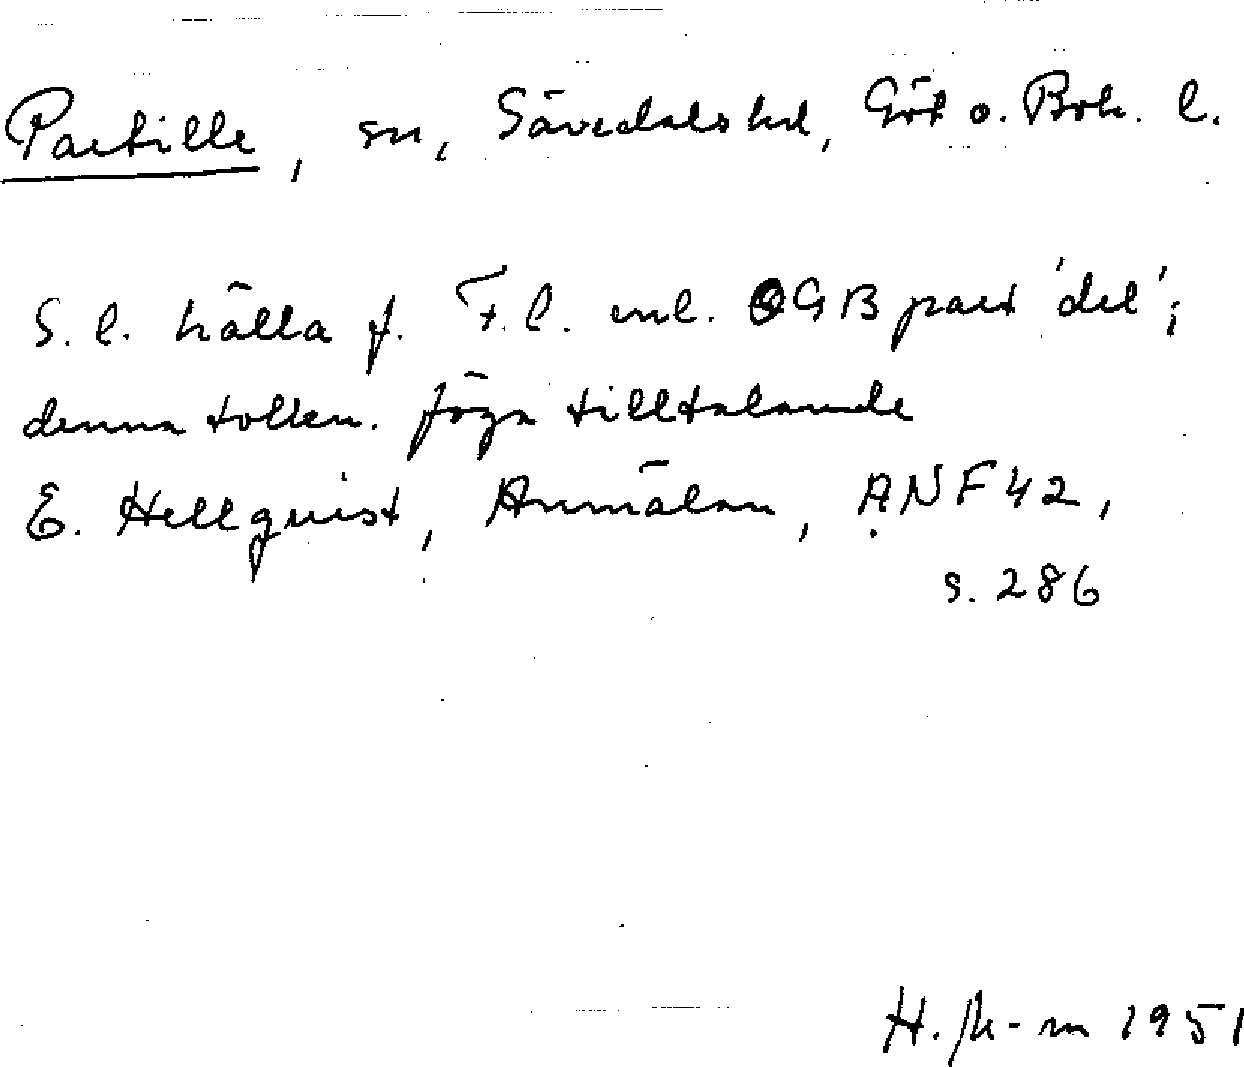 Partille, sn, Sävedals hd, Göt o. Boh. l.
S. l. hälla f. F. l. enl. OGB part 'del';
denna tolkn. föga tilltalande
E. Hellquist, Anmälan, ANF 42,
s. 286
1951